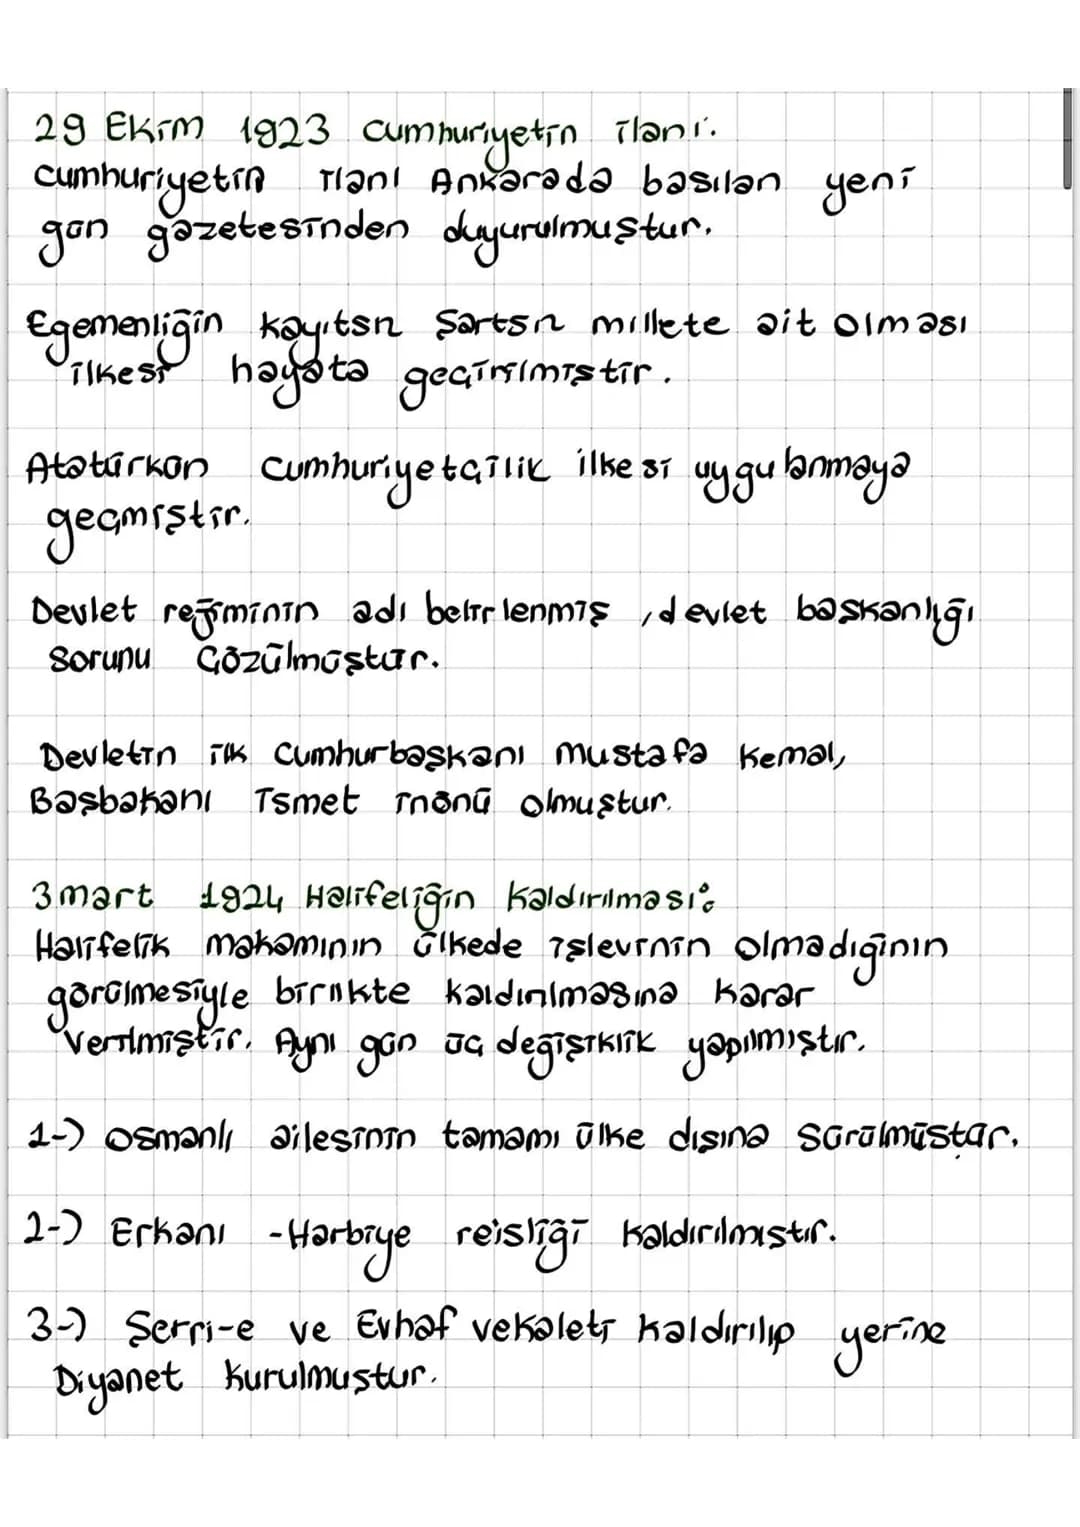 29 Ekim 1923 Cumhuriyetin ilanı.
Cumhuriyetin ilanı Ankarada basılan yeni
gün gazetesinden duyurulmuştur.
Egemenliğin kayıtsız Şartsız millete ait olması
ilkesi hayata geçirilmiştir.
Atatürkün Cumhuriyetçilik ilkesi uygulanmaya
geçmiştir.
Devlet rejiminin adı belirlenmiş, devlet başkanlığı
Sorunu Çözülmüştür.
Devletin ilk Cumhurbaşkanı Mustafa Kemal,
Başbakanı İsmet inönü olmuştur.
3 mart 1924 Halifeliğin Kaldırılması:
Halifelik makamının ülkede işlevinin olmadığının
görülmesiyle birlikte kaldırılmasına karar
verilmiştir. Aynı gün üç değişiklik yapılmıştır.
1-) Osmanlı ailesinin tamamı ülke dışına sürülmüştür.
2-) Erkanı -Harbiye reisliği kaldırılmıştır.
3-) Şerri-e ve Evkaf vekaleti kaldırılıp yerine
Diyanet kurulmuştur.